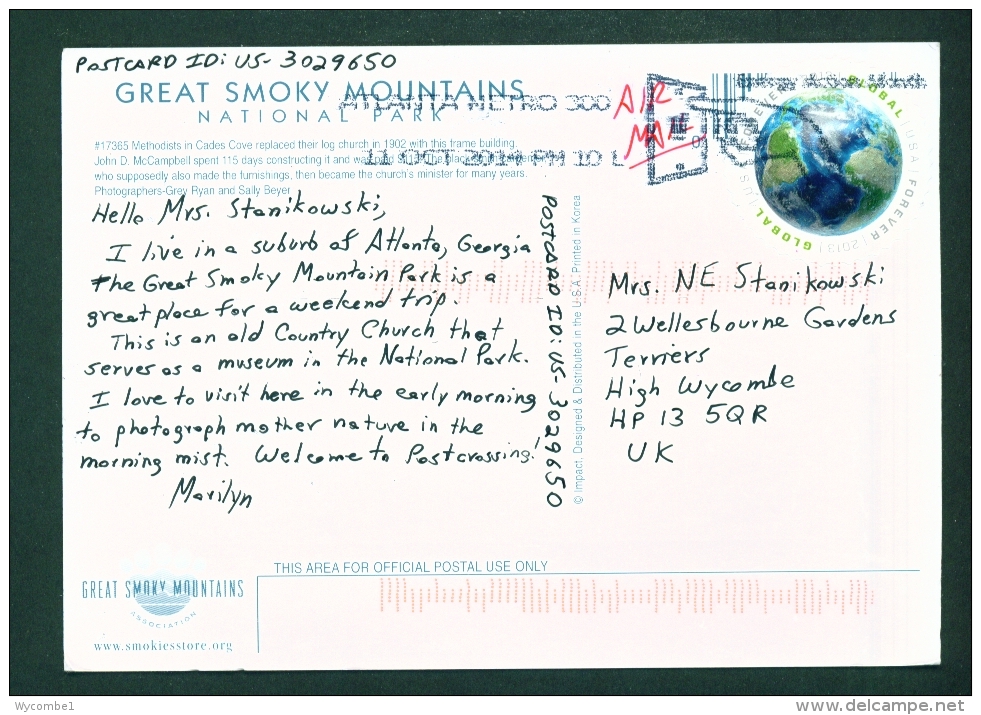 POSTCARD ID: US- 3029650
GREAT SMOKY MOUNTAINS
NATIONAL PARK
#17365 Methodists in Cades Cove replaced their log church in 1902 with this frame building.
John D. McCampbell spent 115 days constructing it and was paid $115. The
who supposedly also made the furnishings, then became the church's minister for many years.
Photographers-Grey Ryan and Sally Beyer
ATLANTA METRO 300
OCT 2014 PM 10 L
AIR
MAIL
GLOBAL | USA | FOREVER | 2013 | GLOBAL | USA | FOREVER
Hello Mrs. Stanikowski,
I live in a suburb of Atlanta, Georgia
the Great Smoky Mountain Park is a
great place for a weekend trip.
This is an old Country Church that
serves as a museum in the National Park.
I love to visit here in the early morning
to photograph mother nature in the
morning mist. Welcome to Postcrossing!
Marilyn
POSTCARD ID: US- 3029650
© Impact. Designed & Distributed in the U.S.A. Printed in Korea
Mrs. NE Stanikowski
2 Wellesbourne Gardens
Terriers
High Wycombe
HP 13 5QR
UK
THIS AREA FOR OFFICIAL POSTAL USE ONLY
GREAT SMOKY MOUNTAINS
ASSOCIATION
www.smokiesstore.org
Wycombe1
delcampe.net